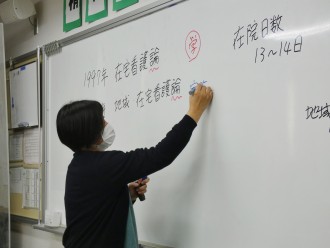 1997年 在宅看護論
地域 在宅看護論
学
在院日数
13〜14日
地域